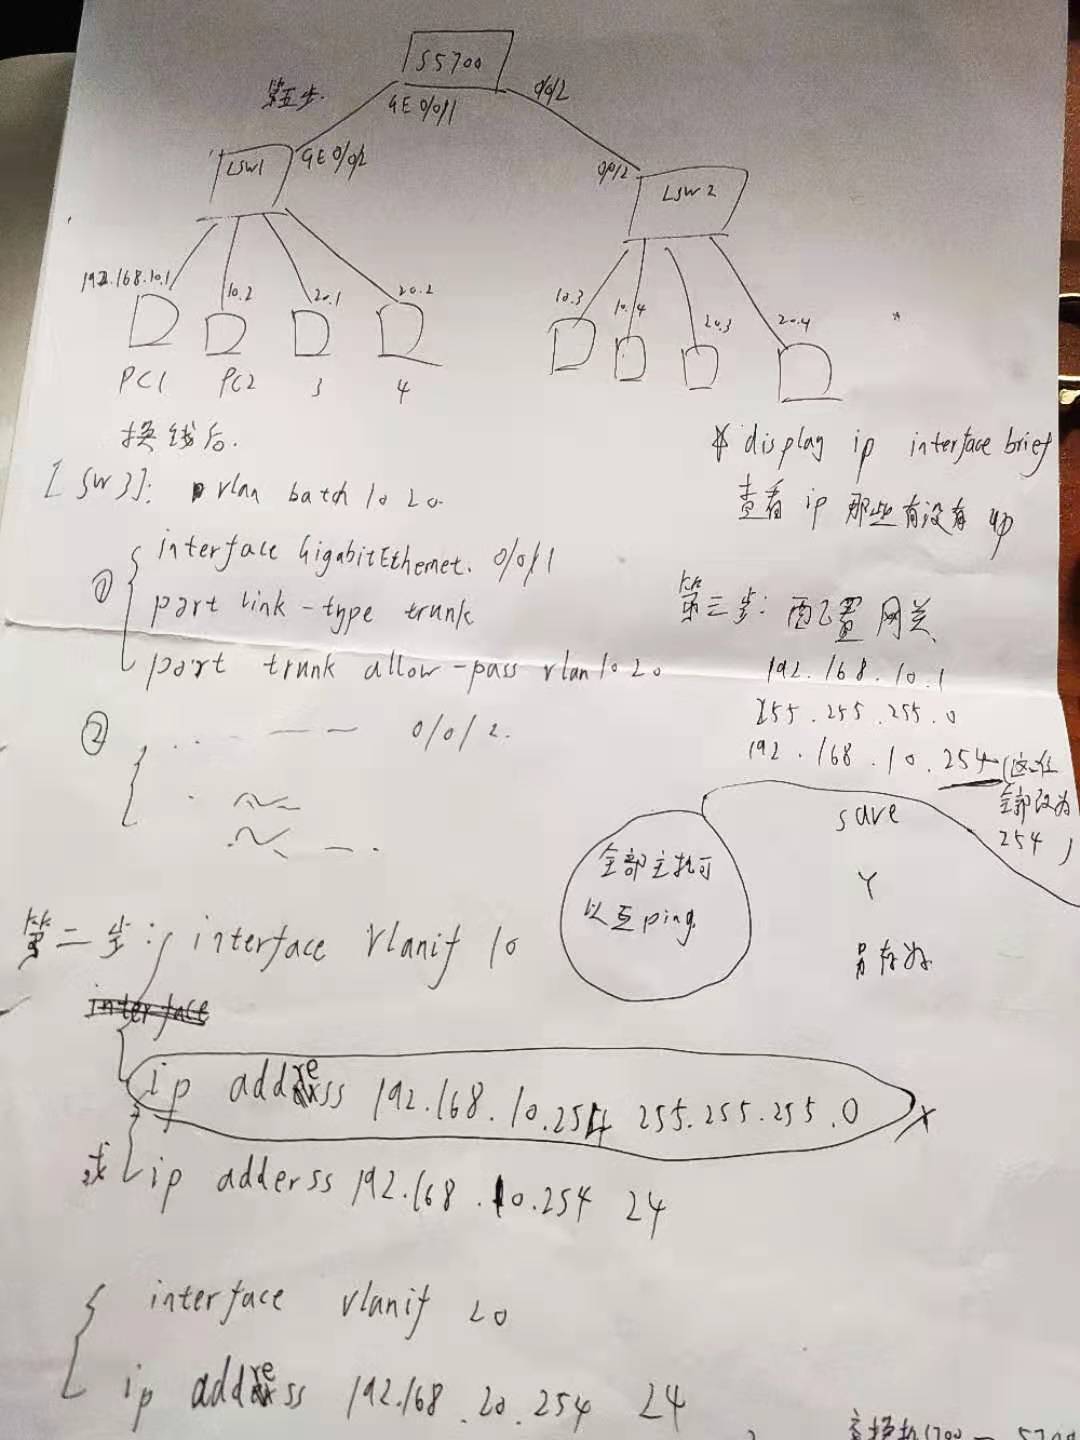 S5700
第五步.
GE 0/0/1
0/0/2
LSW1
GE 0/0/2
0/0/2
LSW2
192.168.10.1
10.2
20.1
20.2
10.3
10.4
20.3
20.4
PC1
PC2
3
4
换线后.
[SW3]: vlan batch 10 20
① interface GigabitEthernet. 0/0/1
port link-type trunk
port trunk allow-pass vlan 10 20
② 0/0/2.
display ip interface brief
查看 ip 那些有没有 up
第三步: 配置 网关
192.168.10.1
255.255.255.0
192.168.10.254 (这
全部改为
254)
save
Y
另存为
全部主机可
以互ping
第二步: interface vlanif 10
interface
ip address 192.168.10.254 255.255.255.0
或 ip adderss 192.168.10.254 24
interface vlanif 20
ip address 192.168.20.254 24